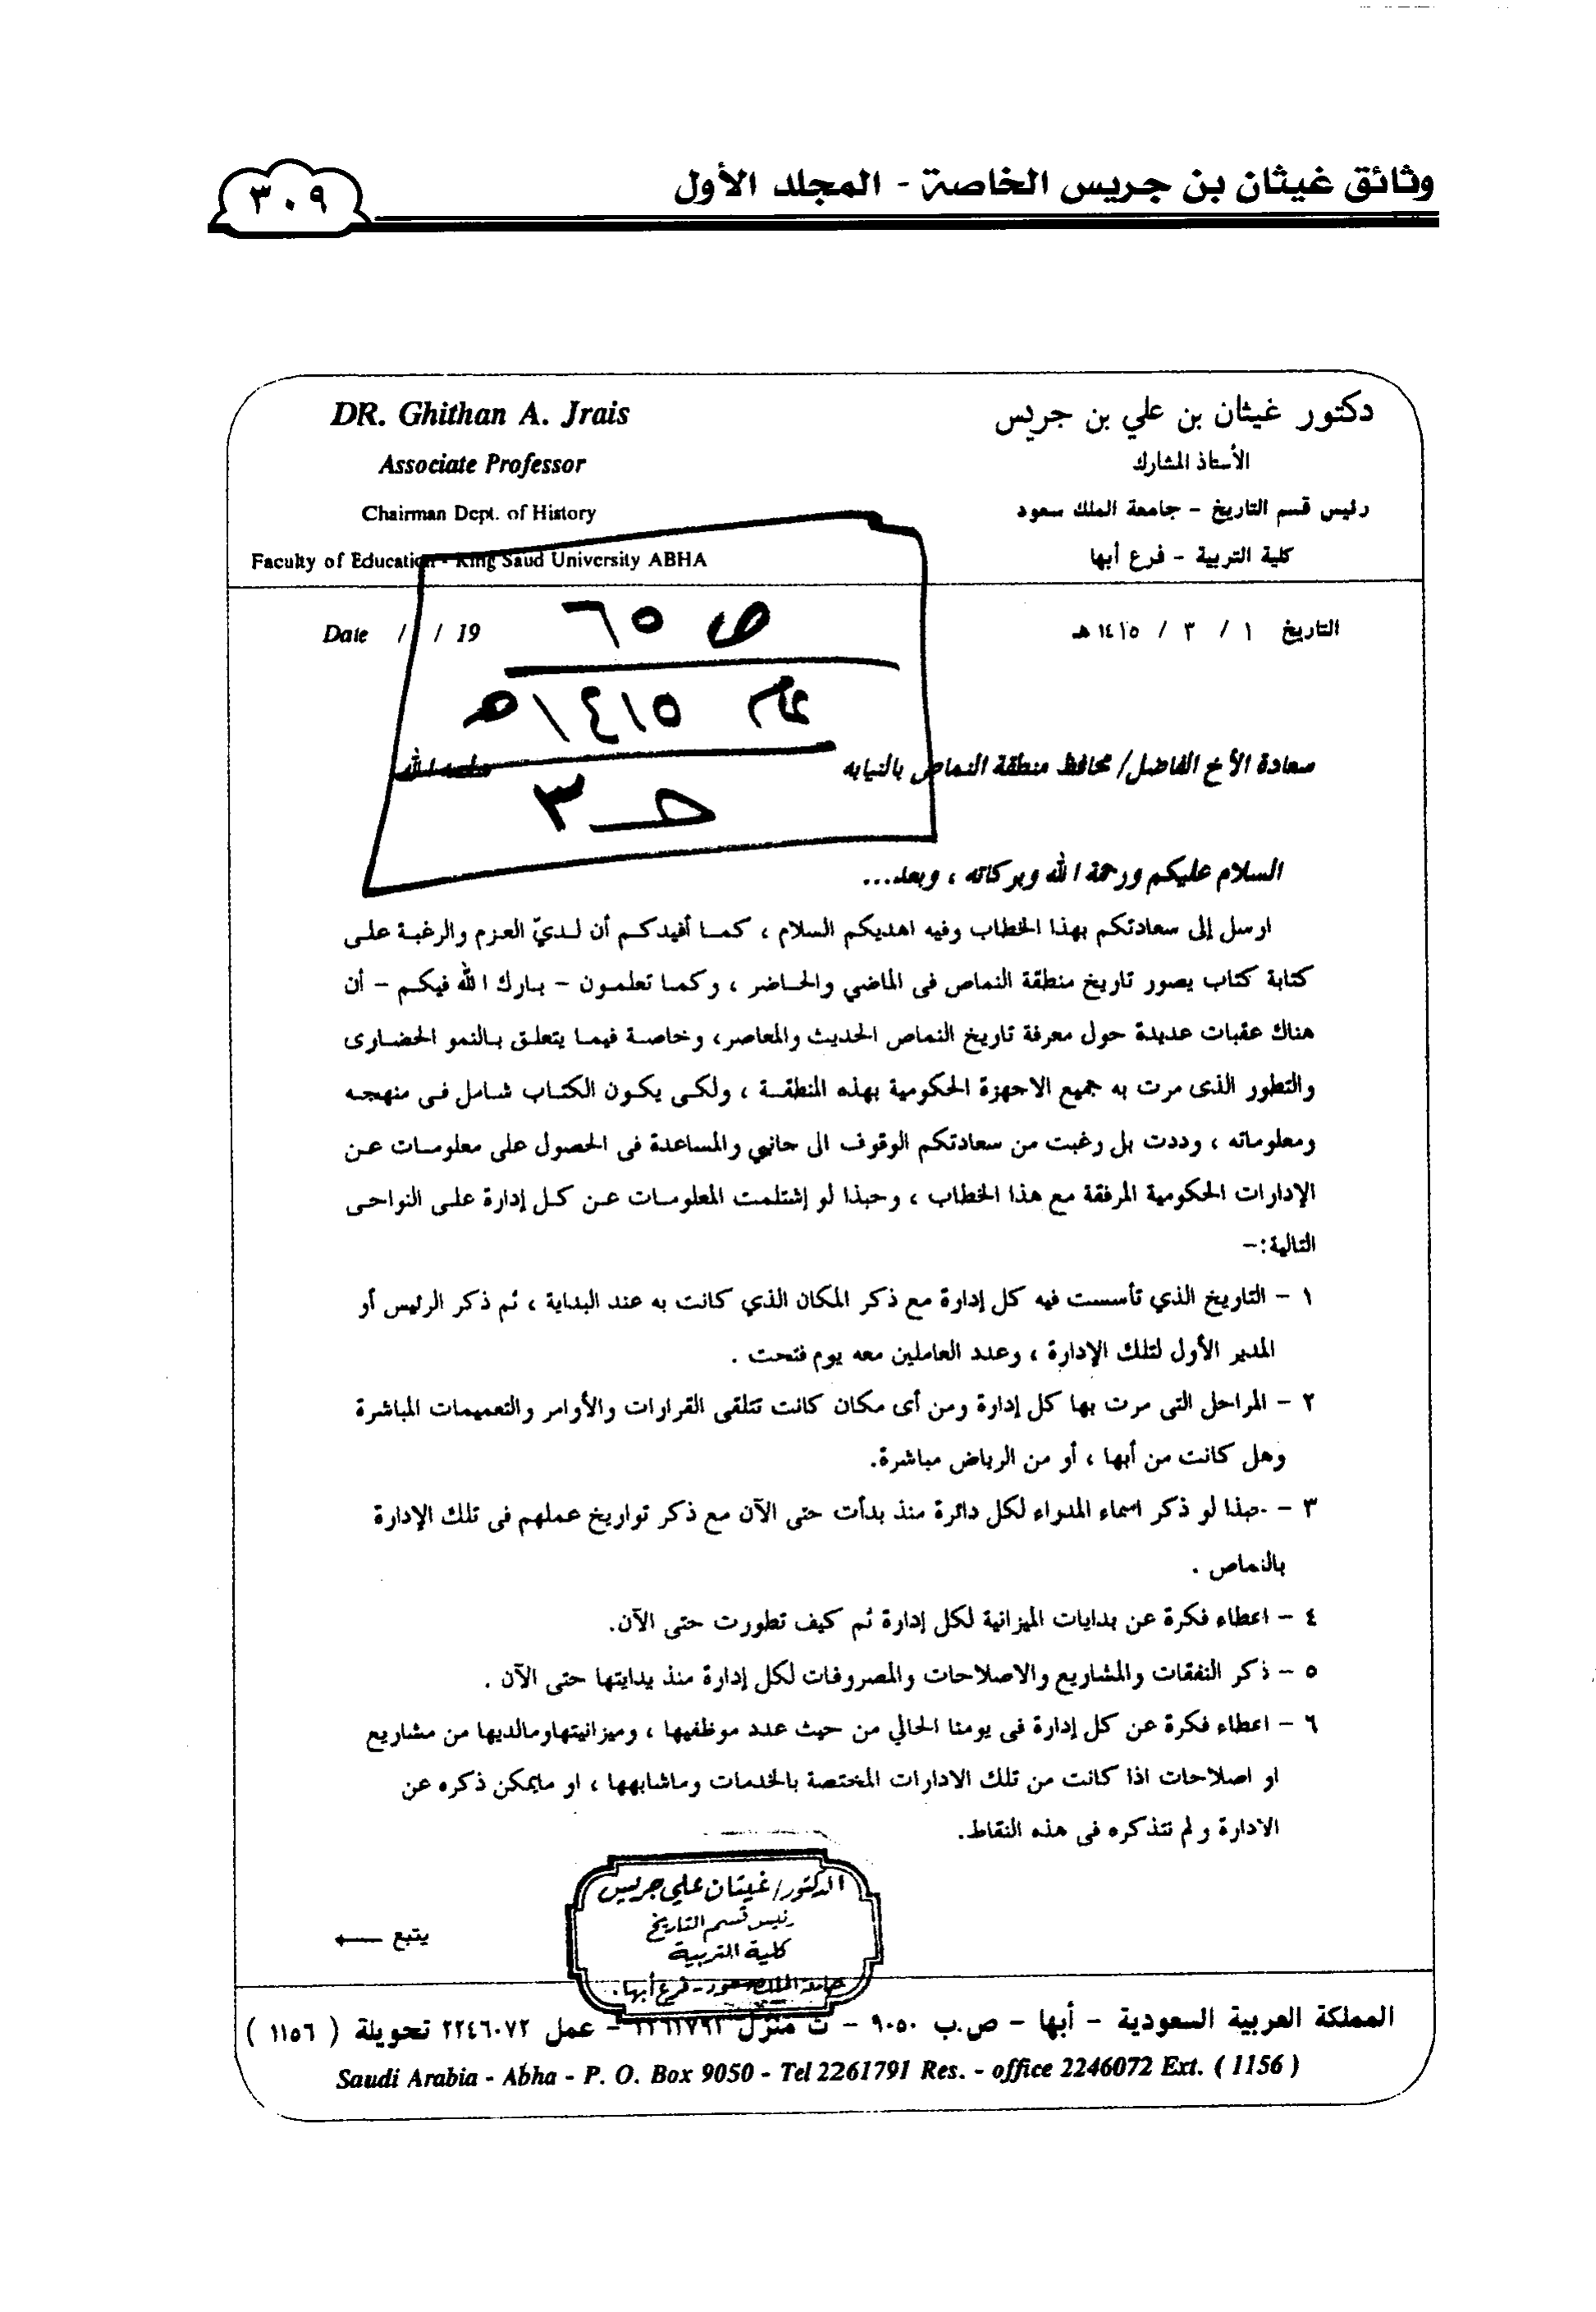 وثائق غيثان بن جريس الخاصة - المجلد الأول
٣٠٩
دكتور غيثان بن علي بن جريس
DR. Ghithan A. Jrais
الأستاذ المشارك
Associate Professor
رئيس قسم التاريخ - جامعة الملك سعود
Chairman Dept. of History
كلية التربية - فرع أبها
Faculty of Education - King Saud University ABHA
التاريخ ١ / ٣ / ١٤١٥ هـ
Date / / 19
ص ٦٥
عام ١٤١٥هـ
حـ ٣
سعادة الأخ الفاضل/ محافظ منطقة النماص بالنيابه
السلام عليكم ورحمة الله وبركاته ، وبعد...
ارسل إلى سعادتكم بهذا الخطاب وفيه اهديكم السلام ، كمـا أفيدكـم أن لـديّ العـزم والرغبـة علـى
كتابة كتاب يصور تاريخ منطقة النماص فى الماضي والحـاضر ، وكمـا تعلمـون - بـارك الله فيكـم - أن
هناك عقبات عديدة حول معرفة تاريخ النماص الحديث والمعاصر، وخاصـة فيمـا يتعلـق بـالنمو الحضـارى
والتطور الذى مرت به جميع الاجهزة الحكومية بهذه المنطقـة ، ولكـى يكـون الكتـاب شـامل فـى منهجـه
ومعلوماته ، وددت بل رغبت من سعادتكم الوقوف الى جانبي والمساعدة فى الحصول على معلومـات عـن
الإدارات الحكومية المرفقة مع هذا الخطاب ، وحبذا لو إشتلمت المعلومـات عـن كـل إدارة علـى النواحـى
التالية:-
١ - التاريخ الذي تأسست فيه كل إدارة مع ذكر المكان الذي كانت به عند البداية ، ثم ذكر الرئيس أو
المدير الأول لتلك الإدارة ، وعدد العاملين معه يوم فتحت .
٢ - المراحل التى مرت بها كل إدارة ومن أى مكان كانت تتلقى القرارات والأوامر والتعميمات المباشرة
وهل كانت من أبها ، أو من الرياض مباشرة.
٣ - حبذا لو ذكر اسماء المدراء لكل دائرة منذ بدأت حتى الآن مع ذكر تواريخ عملهم فى تلك الإدارة
بالنماص .
٤ - اعطاء فكرة عن بدايات الميزانية لكل إدارة ثم كيف تطورت حتى الآن.
٥ - ذكر النفقات والمشاريع والاصلاحات والمصروفات لكل إدارة منذ بدايتها حتى الآن .
٦ - اعطاء فكرة عن كل إدارة فى يومنا الحالي من حيث عدد موظفيها ، وميزانيتهاومالديها من مشاريع
او اصلاحات اذا كانت من تلك الادارات المختصة بالخدمات وماشابهها ، او مايمكن ذكره عن
الادارة ولم نتذكره فى هذه النقاط.
الدكتور/ غيثان علي جريس
رئيس قسم التاريخ
كلية التربية
جامعة الملك سعود - فرع أبها.
يتبع ←
المملكة العربية السعودية - أبها - ص.ب ٩٠٥٠ - ت منزل - عمل ٢٢٤٦٠٧٢ تحويلة ( ١١٥٦ )
Saudi Arabia - Abha - P. O. Box 9050 - Tel 2261791 Res. - office 2246072 Ext. ( 1156 )